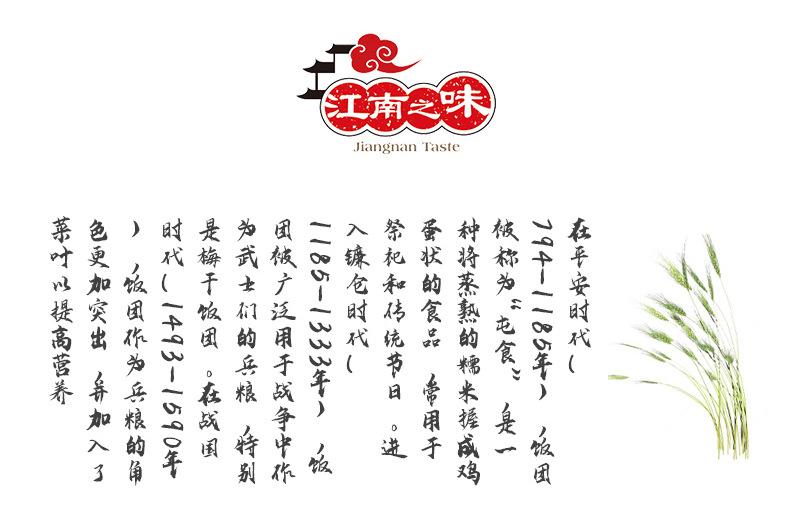 江南之味
Jiangnan Taste
在平安时代(
794-1185年),饭团
被称为“屯食”,是一
种将蒸熟的糯米握成鸡
蛋状的食品,常用于
祭祀和传统节日。进
入镰仓时代(
1185-1333年),饭
团被广泛用于战争中作
为武士们的兵粮,特别
是梅干饭团。在战国
时代(1493-1590年
),饭团作为兵粮的角
色更加突出,并加入了
菜叶以提高营养